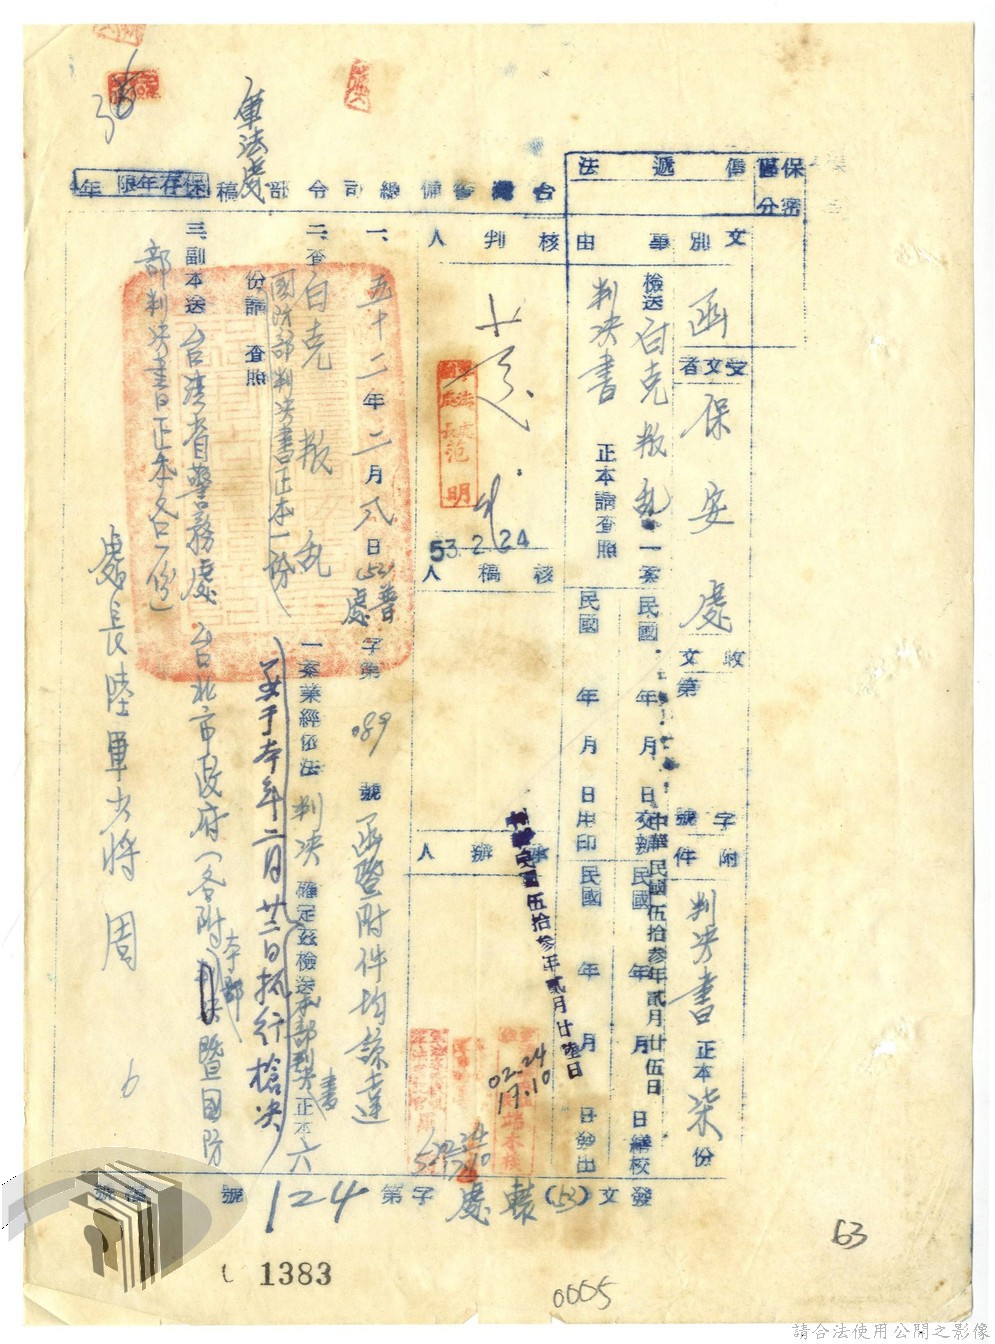 保密區分
傳遞法
台灣警備總司令部稿
保存年限 年
軍法處
文別 函
受文者 保安處
收文 第 字 號
附件 判決書正本柒份
事由
檢送白克叛乱一案
判決書正本請查照
民國 年 月 日交辦
民國 年 月 日繕校
中華民國伍拾叁年貳月廿五日
民國 年 月 日用印
民國 年 月 日發出
中華民國伍拾叁年貳月廿陸日
核判人
軍法處
副處長范明
53.2.24
核稿人
承辦人
02.24
17.10
一、五十二年二月八日(52)普處字第089號函暨附件均諒達
二、查白克叛乱一案業經依法判決確定茲檢送本部判決書正本六
國防部判決書正本一份
並于本年二月廿二日执行槍决
份請查照
三、副本送台湾省警務處台北市政府(各附本部判決暨國防
部判決書正本各一份)
處長陸軍少將周
發文(53)轅處字第124號
檔號
1383
0005
63
請合法使用公開之影像